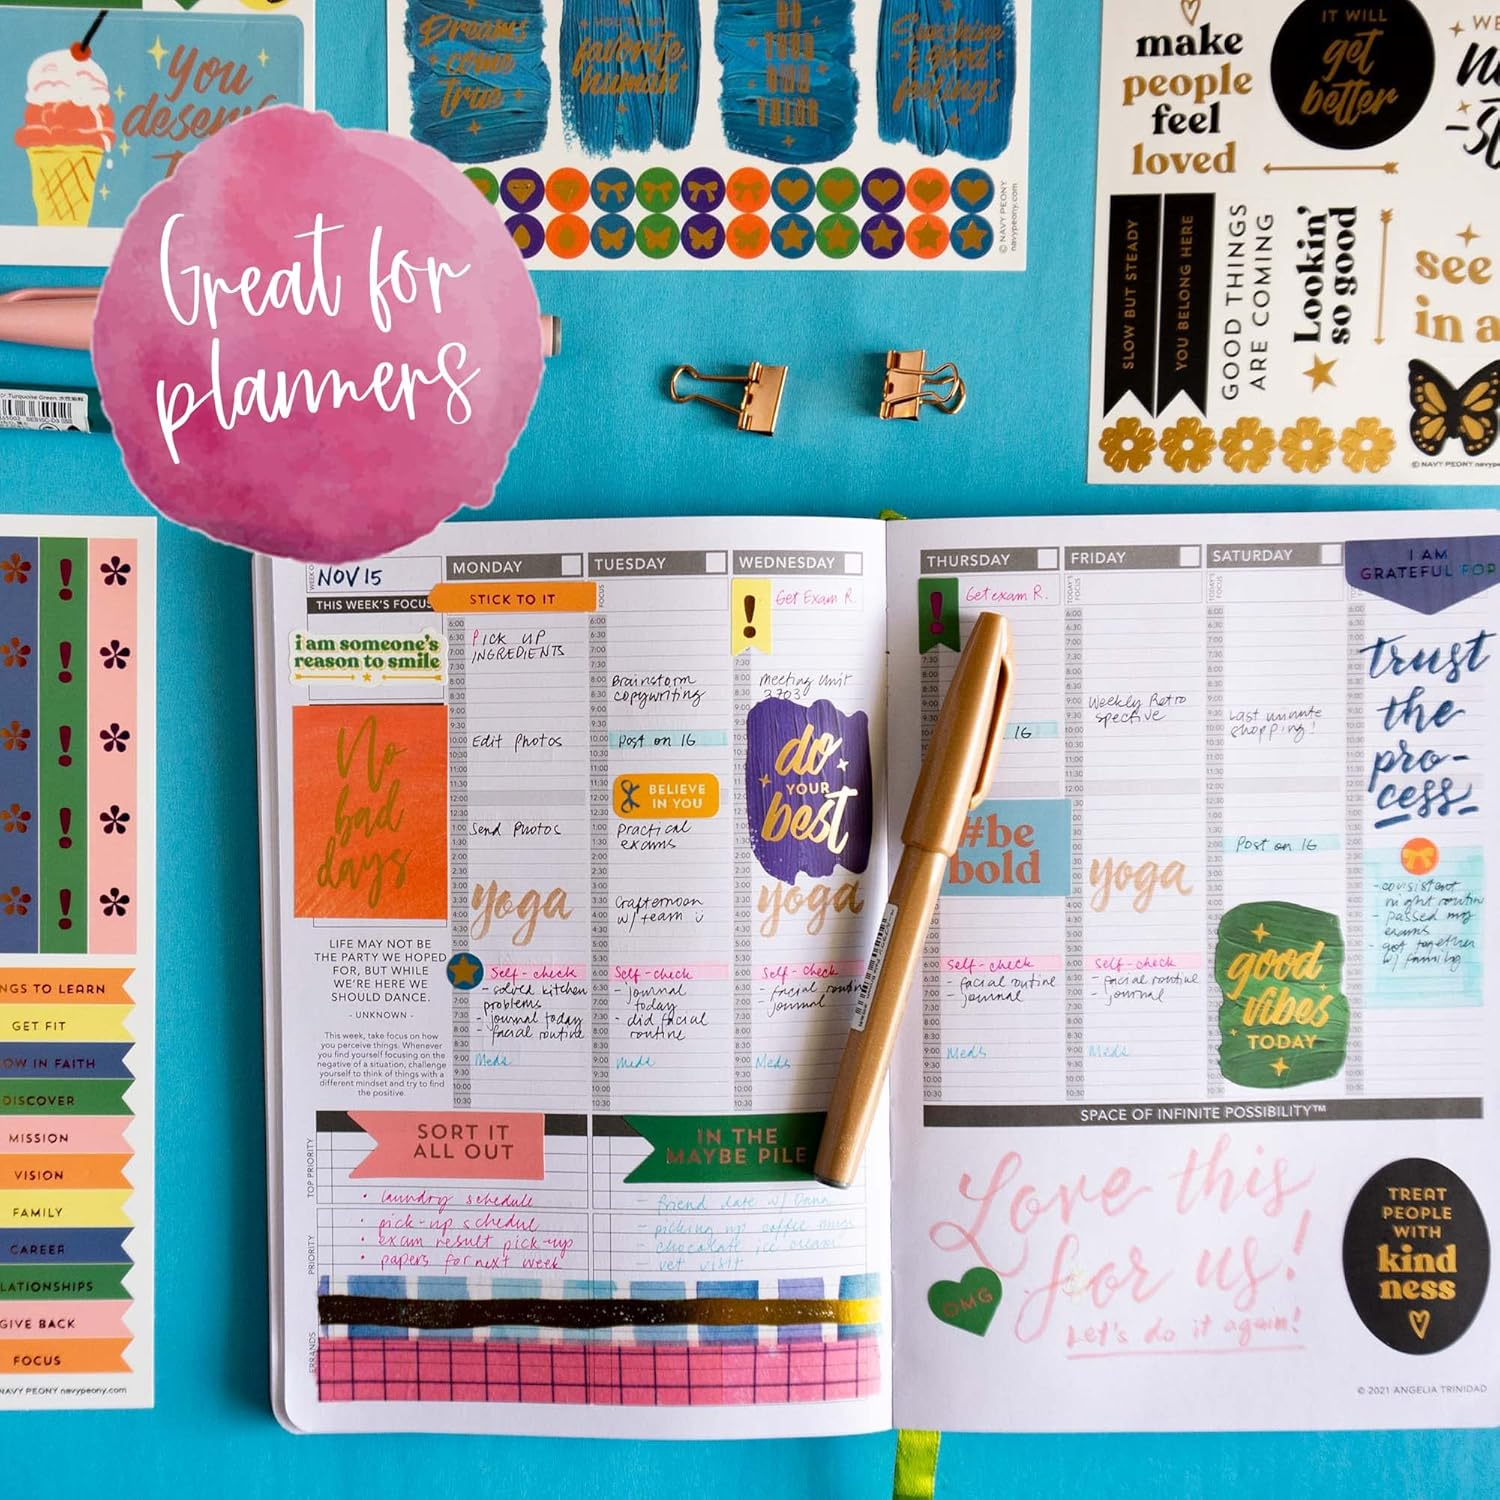 You
Dreams
come
true
YOU'RE MY
favorite
human
DO
YOUR
OWN
THING
Sunshine
& good
feelings
© NAVY PEONY
navypeony.com
make
people
feel
loved
IT WILL
get
better
SLOW BUT STEADY
YOU BELONG HERE
GOOD THINGS
ARE COMING
Lookin'
so good
see
in a
© NAVY PEONY
Great for
planners
Turquoise Green
NOV 15
THIS WEEK'S FOCUS
i am someone's
reason to smile
No
bad
days
LIFE MAY NOT BE
THE PARTY WE HOPED
FOR, BUT WHILE
WE'RE HERE WE
SHOULD DANCE.
- UNKNOWN -
This week, take focus on how
you perceive things. Whenever
you find yourself focusing on the
negative of a situation, challenge
yourself to think of things with a
different mindset and try to find
the positive.
MONDAY
STICK TO IT
PICK UP
INGREDIENTS
Edit photos
Send photos
yoga
Self-check
- solved kitchen
problems
- journal today
- facial routine
Meds
TUESDAY
FOCUS
Brainstorm
copywriting
Post on IG
BELIEVE
IN YOU
practical
exams
Crafternoon
w/ team
Self-check
- journal
today
- did facial
routine
Meds
WEDNESDAY
Get Exam R.
Meeting Unit
3703
do
YOUR
best
yoga
Self-check
- facial routine
- journal
Meds
THURSDAY
Get exam R.
IG
#be
bold
Self-check
- facial routine
- journal
Meds
FRIDAY
TODAY'S
FOCUS
Weekly Retro
spective
yoga
Self-check
- facial routine
- journal
Meds
SATURDAY
TODAY'S
FOCUS
Last minute
shopping!
Post on IG
good
vibes
TODAY
I AM
GRATEFUL FOR
trust
the
pro-
cess
- consistent
night routin
- passed my
exams
- got together
w/ family
TOP PRIORITY
PRIORITY
ERRANDS
SORT IT
ALL OUT
• laundry schedule
• pick-up schedul
• exam result pick-up
• papers for next week
IN THE
MAYBE PILE
- friend date w/
- picking up coffee mugs
- chocolate ice cream
- vet visit
SPACE OF INFINITE POSSIBILITY™
Love this
for us!
Let's do it again!
OMG
TREAT
PEOPLE
WITH
kind
ness
© 2021 ANGELIA TRINIDAD
NGS TO LEARN
GET FIT
OW IN FAITH
DISCOVER
MISSION
VISION
FAMILY
CAREER
LATIONSHIPS
GIVE BACK
FOCUS
NAVY PEONY navypeony.com